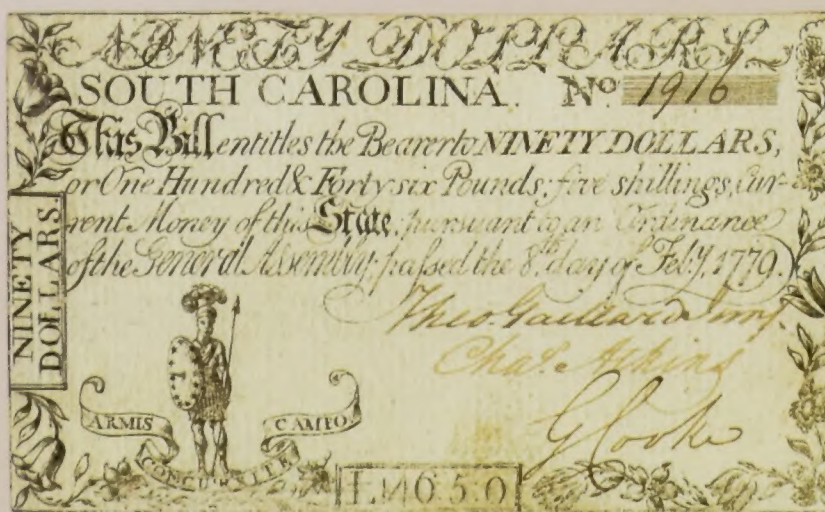 NINETY DOLLARS
SOUTH CAROLINA. No. 1916
This Bill entitles the Bearer to NINETY DOLLARS,
or One Hundred & Forty six Pounds; five shillings, Cur-
rent Money of this State; pursuant to an Ordinance
of the General Assembly; passed the 8th. day of Feb.y, 1779.
NINETY
DOLLARS.
Theo. Gaillard Junr.
Chas. Atkins
G Cooke
ARMIS
CAMPO